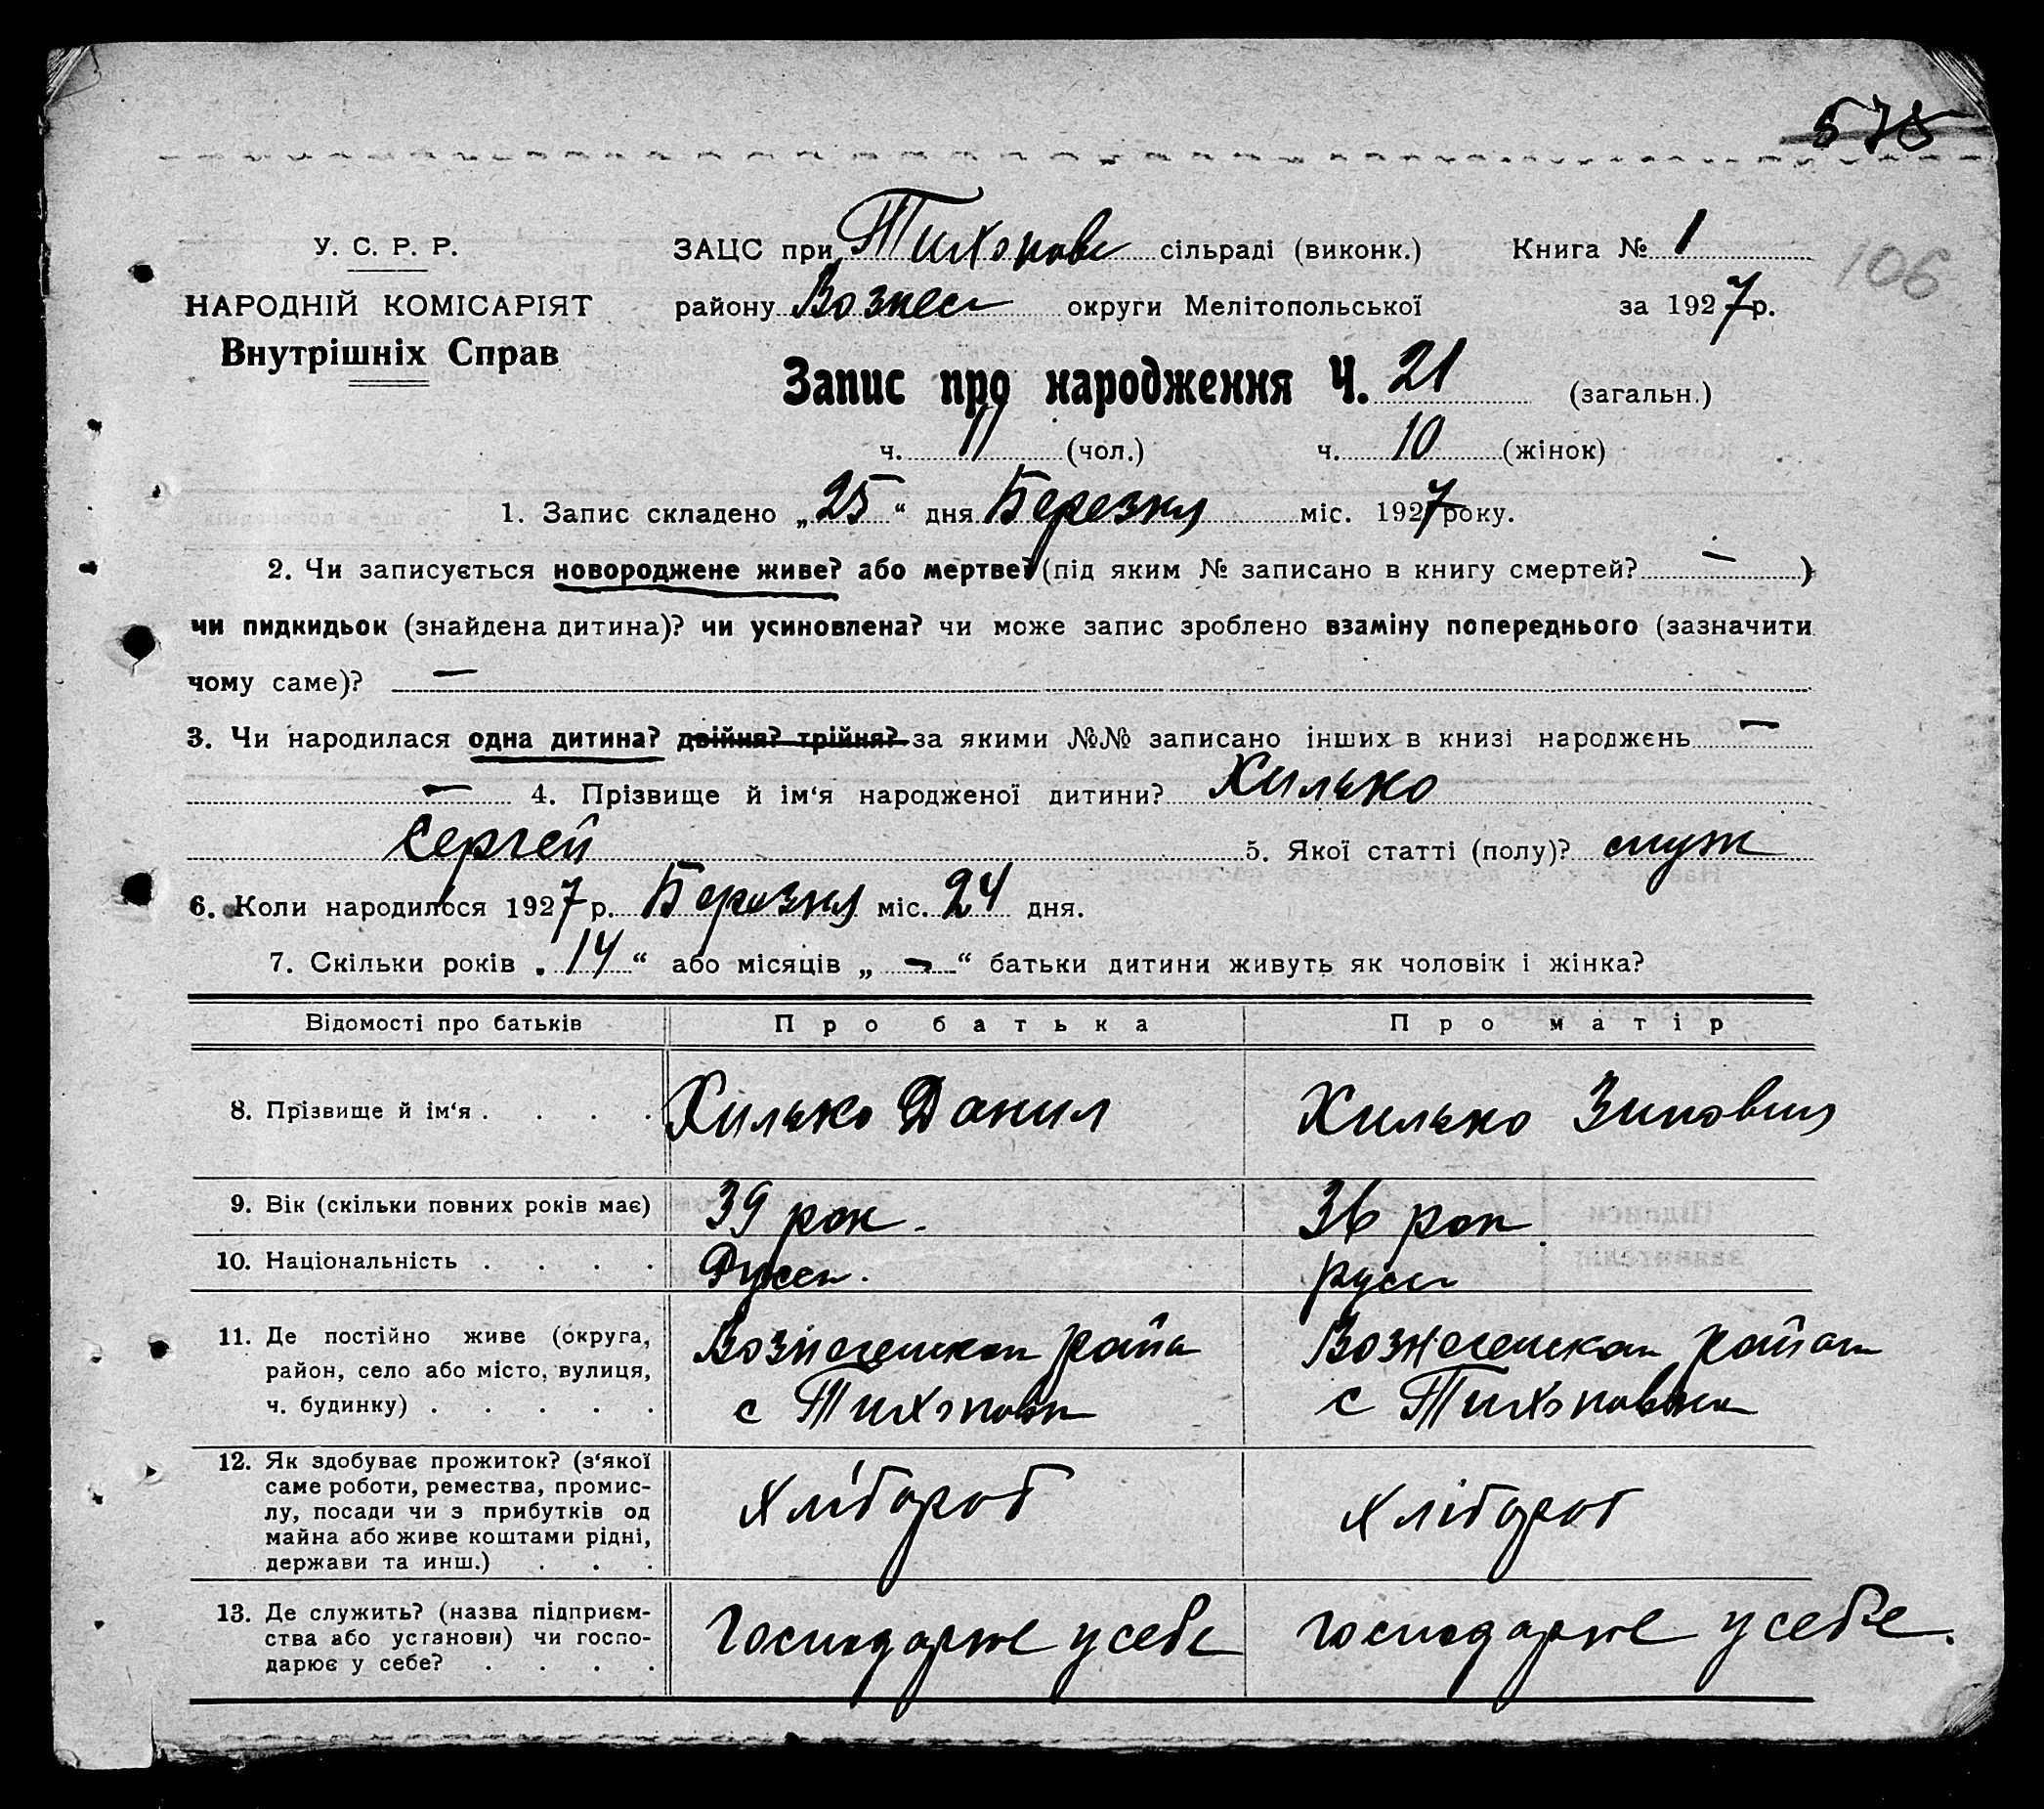 578
У. С. Р. Р.
ЗАЦС при Тихонов сільраді (виконк.) Книга № 1
106
НАРОДНІЙ КОМІСАРІЯТ
району Вознес округи Мелітопольської за 1927 р.
Внутрішніх Справ
Запис про народження Ч. 21 (загальн.)
ч. 11 (чол.) ч. 10 (жінок)
1. Запис складено „25“ дня Березня міс. 1927 року.
2. Чи записується новороджене живе? або мертве? (під яким № записано в книгу смертей? — )
чи пидкидьок (знайдена дитина)? чи усиновлена? чи може запис зроблено взаміну попереднього (зазначити
чому саме)? —
3. Чи народилася одна дитина? двійня? трійня? за якими №№ записано інших в книзі народжень —
— 4. Прізвище й ім‘я народженої дитини? Хилько
Сергей 5. Якої статті (полу)?
6. Коли народилося 1927 р. Березня міс. 24 дня.
7. Скільки років „14“ або місяців „ — “ батьки дитини живуть як чоловік і жінка?
Відомості про батьків Про батька Про матір
8. Прізвище й ім‘я . . . . Хилько Данил Хилько Зиновия
9. Вік (скільки повних років має) 39 рок. 36 рок
10. Національність . . . . Русск. русс
11. Де постійно живе (округа,
район, село або місто, вулиця,
ч. будинку) . . . . .
Вознесенськ район Вознесенськ район
с Тихоновк с Тихоновка
12. Як здобуває прожиток? (з‘якої
саме роботи, ремества, промис-
лу, посади чи з прибутків од
майна або живе коштами рідні,
держави та инш.) . . .
хлібороб хлібороб
13. Де служить? (назва підприєм-
ства або установи) чи госпо-
дарює у себе? . . . .
Господарює у себе господарює у себе.